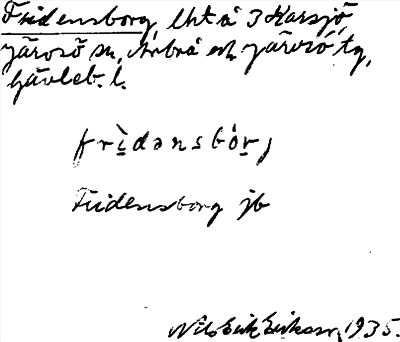 Fridensborg, lht å 3 Karsjö,
Järvsö sn, Arbrå och Järvsö tg,
Gävleb. l.
frìdənsbór,
Fridensborg jb
Nils Erik Eriksson, 1935.